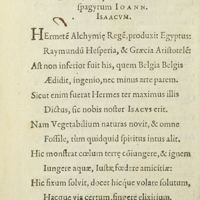 spagyrum IOANN.
ISAACVM.
Hermetẽ Alchymię Regẽ produxit Egyptus:
Raymundũ Hesperia, & Gręcia Aristotelẽ:
Ast non inferior fuit his, quem Belgia Belgis
Ædidit, ingenio, nec minus arte parem.
Sicut enim fuerat Hermes ter maximus illis
Dictus, sic nobis noster ISACVS erit.
Nam Vegetabilium naturas novit, & omne
Fossile, tùm quidquid spiritus intus alit.
Hic monstrat cœlum terrę cõiungere, & ignem
Iungere aquæ, Iustæ fœdere amicitiæ:
Hic fixum solvit, docet hicque volare solutum,
Hacque via certum, fingere elixirium.